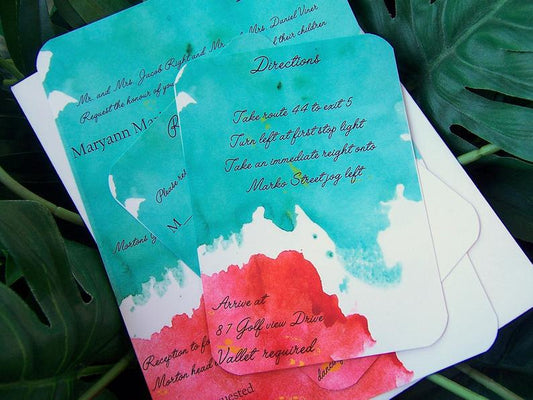 Mr. and Mrs. Jacob Right and Mr. and Mrs. Daniel Viner
their children
Request the honour of you
Maryann Ma
Please re
M
Mortons
Reception to fo
Morton head
quested
dancing
Directions
Take route 44 to exit 5
Turn left at first stop light
Take an immediate reight onto
Marko Street jog left
Arrive at
87 Golf view Drive
Vallet required